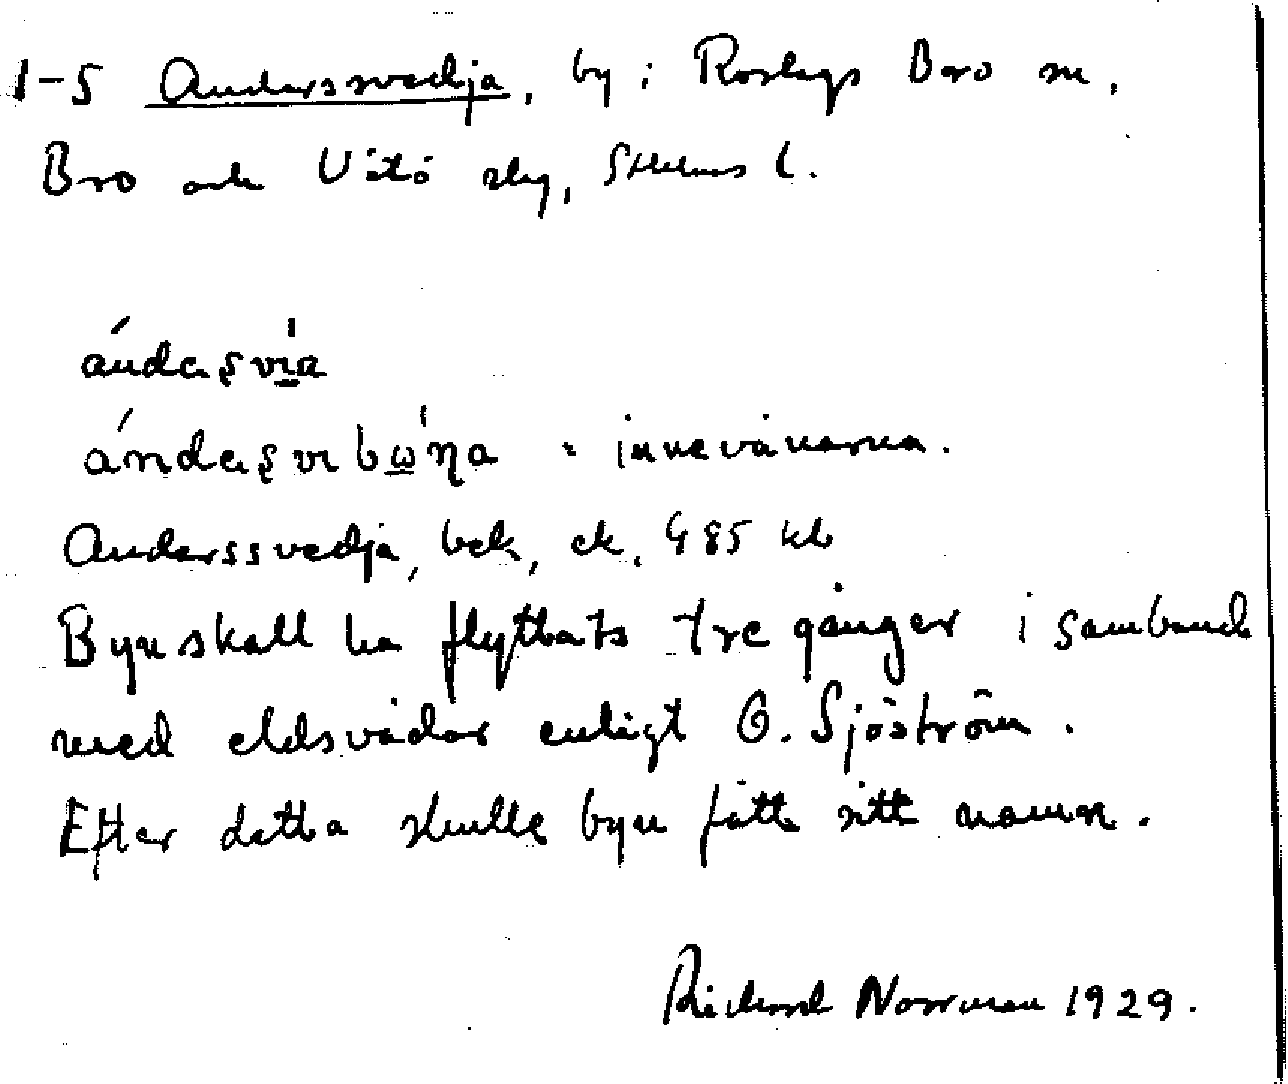 1-5 Anderssvedja, by i Roslags Bro sn,
Bro och Vätö skg, Sthlms l.
ándaʂvi̲a
ándaʂvibω̲ɳa = innevånarna.
Anderssvedja, bek, ek, 485 kb
Byn skall ha flyttats tre gånger i samband
med eldsvådor enligt G. Sjöström.
Efter detta skulle byn fått sitt namn.
Richard Norrman 1929.